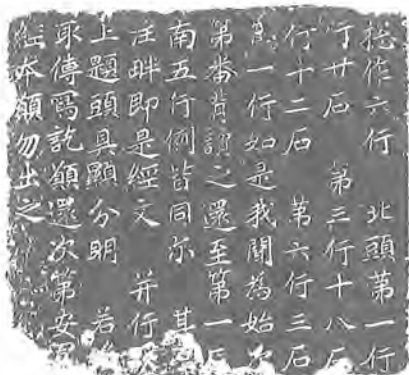 捴作六行　北頭第一行
行廿石　第三行十八石
行十二石　第六行三石
一行如是我聞為始次
第番背讀之還至第一石
南五行例皆同尓　其
注畔即是經文　并行
上題頭具顯分明　若
取傳寫訖願還次第安置
經本願勿出之